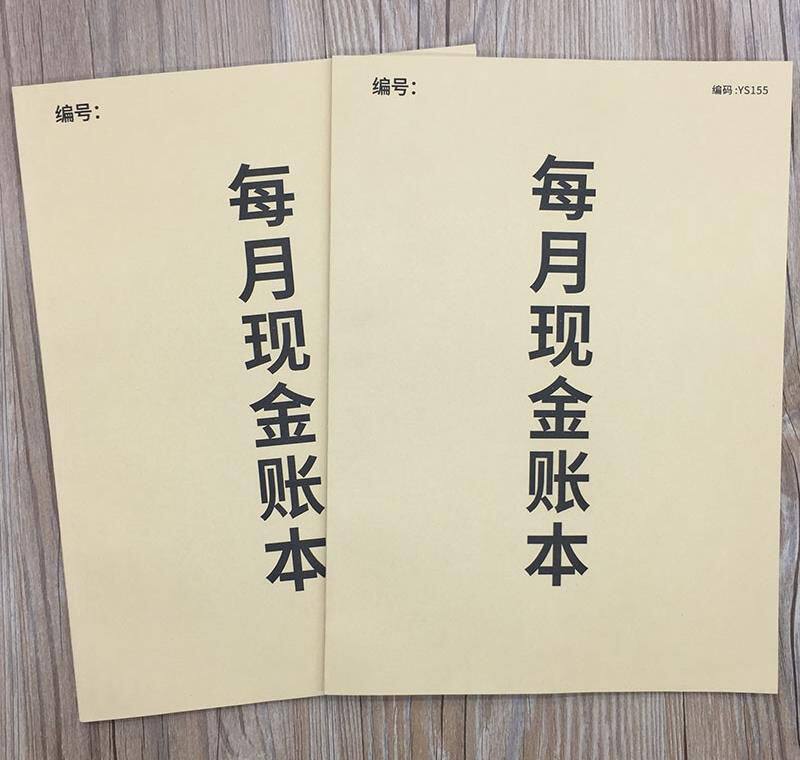 编号：
每月现金账本
编号：
编码:YS155
每月现金账本